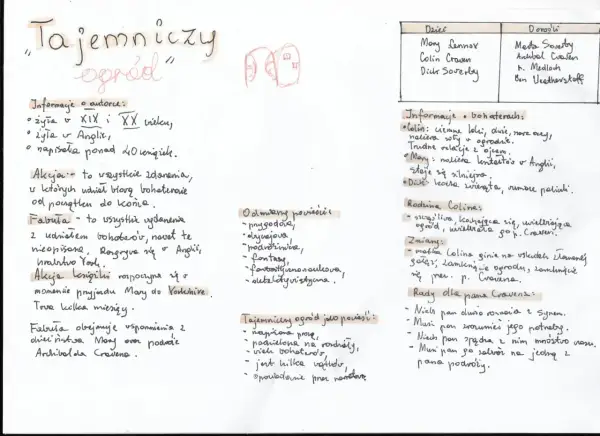 „Tajemniczy
ogród”
Informacje o autorce:
• żyła w XIX i XX wieku,
• żyła w Anglii,
• napisała ponad 40 książek.
Akcja - to wszystkie zdarzenia,
w których udział biorą bohaterowie
od początku do końca.
Fabuła - to wszystkie wydarzenia
z udziałem bohaterów, nawet te
nieopisane. Rozgrywa się w Anglii,
hrabstwo York.
Akcja książki rozpoczyna się w
momencie przyjazdu Mary do Yorkshire.
Trwa kilka miesięcy.
Fabuła obejmuje wspomnienia z
dzieciństwa Mary oraz podróże
Archibalda Cravena.
Odmiany powieści:
- przygodowa,
- obyczajowa
- podróżnicza,
- fantasy,
- fantastycznonaukowa,
- detektywistyczna.
Tajemniczy ogród jako powieść:
- napisana prozą,
- podzielona na rozdziały,
- wielu bohaterów,
- jest kilka wątków,
- opowiadanie przez narratora.
Dzieci
Mary Lennox
Colin Craven
Dick Sowerby
Dorośli
Marta Sowerby
Archibal Craven
p. Medlock
Ben Weatherstaff
Informacje o bohaterach:
• Colin: ciemne loki, duże, szare oczy,
nabiera siły w ogrodzie.
Trudne relacje z ojcem.
• Mary: nabiera w Anglii,
staje się silniejsza.
• Dick: kocha zwierzęta,
Rodzina Colina:
- szczęśliwa, kochająca się, uwielbiająca
ogród, p. Craven.
Zmiany:
- matka Colina ginie na skutek złamanej
gałęzi, zamknięcie ogrodu, zamknięcie
się p. Cravena.
Rady dla pana Cravena:
- Niech pan dużo rozmawia z synem.
- Musi pan zrozumieć jego potrzeby.
- Niech pan spędza z nim mnóstwo czasu.
- Musi pan go zabrać na jedną z
pana podróży.